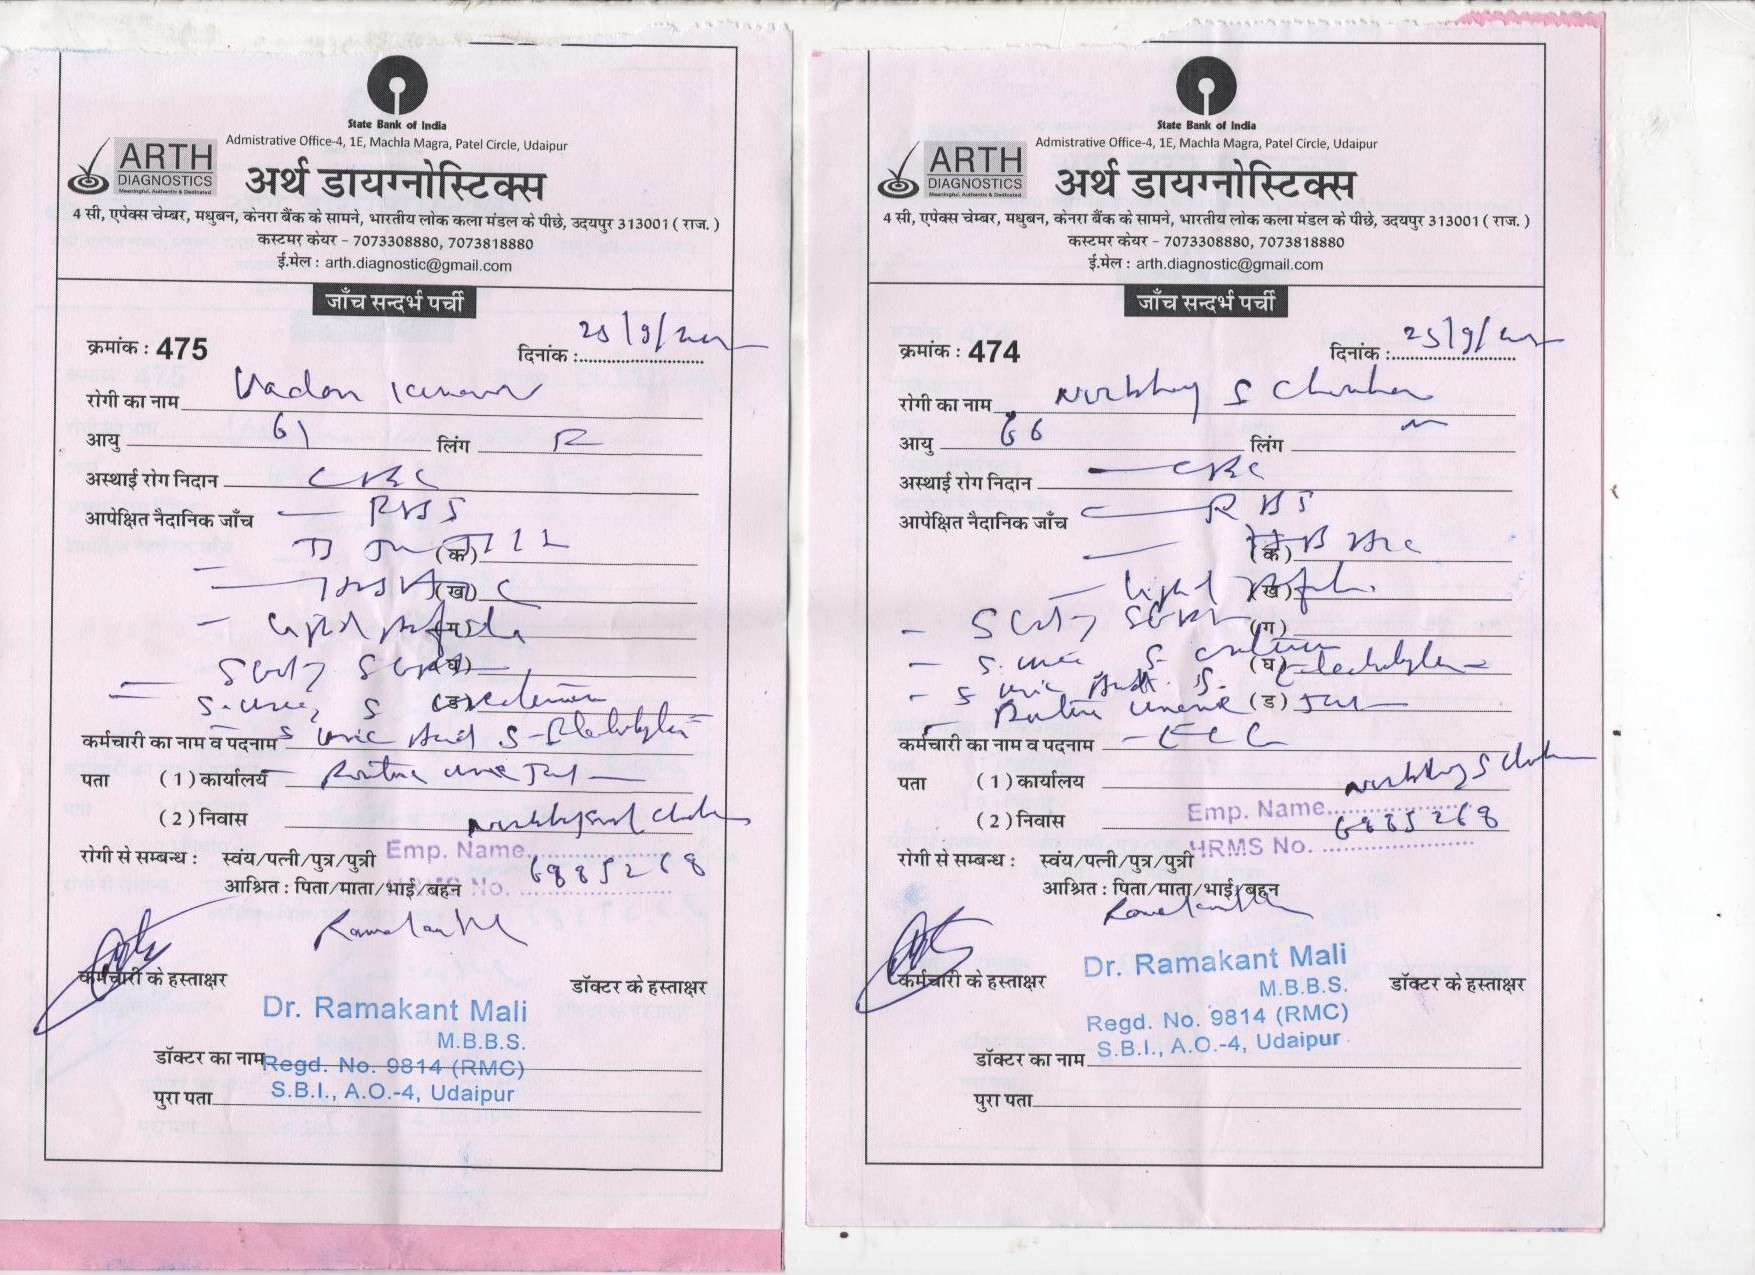 State Bank of India
Admistrative Office-4, 1E, Machla Magra, Patel Circle, Udaipur
ARTH
DIAGNOSTICS
Meaningful, Authentic & Dedicated
अर्थ डायग्नोस्टिक्स
4 सी, एपेक्स चेम्बर, मधुबन, केनरा बैंक के सामने, भारतीय लोक कला मंडल के पीछे, उदयपुर 313001 ( राज. )
कस्टमर केयर - 7073308880, 7073818880
ई.मेल : arth.diagnostic@gmail.com
जाँच सन्दर्भ पर्ची
क्रमांक : 475
दिनांक :
रोगी का नाम
आयु 61 लिंग F
अस्थाई रोग निदान CBC
आपेक्षित नैदानिक जाँच - RBS
(क)
(ख)
(ग) Lipid Profile
(घ) SGOT SGPT
(ड) S. urea, S creatinine
कर्मचारी का नाम व पदनाम S Uric Acid S-Electrolytes
पता (1) कार्यालय Routine urine
(2) निवास
रोगी से सम्बन्ध : स्वंय/पत्नी/पुत्र/पुत्री Emp. Name
आश्रित : पिता/माता/भाई/बहन HRMS No. 6885268
कर्मचारी के हस्ताक्षर
डॉक्टर के हस्ताक्षर
Dr. Ramakant Mali
M.B.B.S.
डॉक्टर का नाम Regd. No. 9814 (RMC)
पुरा पता S.B.I., A.O.-4, Udaipur
State Bank of India
Admistrative Office-4, 1E, Machla Magra, Patel Circle, Udaipur
ARTH
DIAGNOSTICS
Meaningful, Authentic & Dedicated
अर्थ डायग्नोस्टिक्स
4 सी, एपेक्स चेम्बर, मधुबन, केनरा बैंक के सामने, भारतीय लोक कला मंडल के पीछे, उदयपुर 313001 ( राज. )
कस्टमर केयर - 7073308880, 7073818880
ई.मेल : arth.diagnostic@gmail.com
जाँच सन्दर्भ पर्ची
क्रमांक : 474
दिनांक :
रोगी का नाम Nirbhay S Chauhan
आयु 66 लिंग M
अस्थाई रोग निदान - CBC
आपेक्षित नैदानिक जाँच - RBS
(क)
(ख) - Lipid Profile
(ग) - SGOT SGPT
(घ) - S. urea S. creatinine Electrolytes
(ड) - S uric Acid
Routine urine
कर्मचारी का नाम व पदनाम - ECG
पता (1) कार्यालय Nirbhay S Chauhan
(2) निवास Emp. Name 6885268
HRMS No.
रोगी से सम्बन्ध : स्वंय/पत्नी/पुत्र/पुत्री
आश्रित : पिता/माता/भाई/बहन
कर्मचारी के हस्ताक्षर
डॉक्टर के हस्ताक्षर
Dr. Ramakant Mali
M.B.B.S.
Regd. No. 9814 (RMC)
डॉक्टर का नाम S.B.I., A.O.-4, Udaipur
पुरा पता